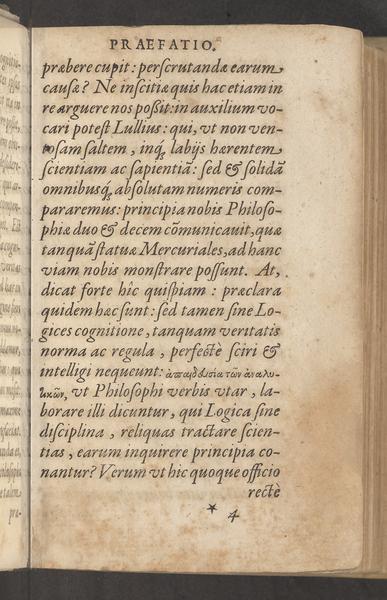 PRAEFATIO.
præbere cupit: perſcrutandæ earum
cauſæ? Ne inſcitiæ quis hac etiam in
re arguere nos poßit: in auxilium vo-
cari poteſt Lullius: qui, vt non ven-
toſam ſaltem, inq́; labijs hærentem
ſcientiam ac ſapientiã: ſed & ſolidã
omnibusq́; abſolutam numeris com-
pararemus: principia nobis Philoſo-
phiæ duo & decem cõmunicauit, quæ
tanquã ſtatuæ Mercuriales, ad hanc
viam nobis monſtrare poſſunt. At,
dicat forte hîc quiſpiam: præclara
quidem hæc ſunt: ſed tamen ſine Lo-
gices cognitione, tanquam veritatis
norma ac regula, perfectè ſciri &
intelligi nequeunt: ἀπαιδευσία τῶν ἀναλυ-
τικῶν, vt Philoſophi verbis vtar, la-
borare illi dicuntur, qui Logica ſine
diſciplina, reliquas tractare ſcien-
tias, earum inquirere principia co-
nantur? Verum vt hic quoque officio
rectè
* 4